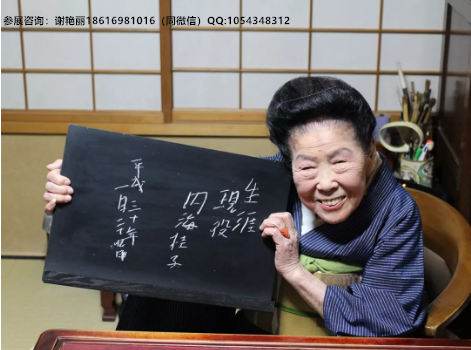 参展咨询：谢艳丽18616981016（同微信）QQ:1054348312
生涯
現役
内海桂子
平成三十年
一月二十四日